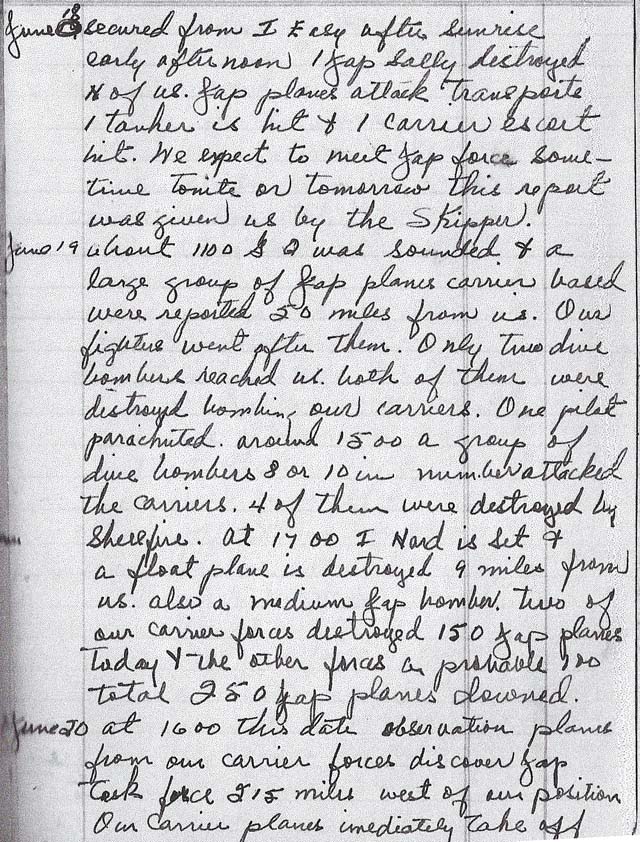 June 18 secured from I Easy after sunrise
early afternoon 1 Jap Sally destroyed
of us. Jap planes attack transports
1 tanker is hit & 1 carrier escort
hit. We expect to meet Jap force some-
time tonite or tomorrow this report
was given us by the Skipper.
June 19 about 1100 G Q was sounded & a
large group of Jap planes carrier based
were reported 20 miles from us. Our
fighters went after them. Only two dive
bombers reached us. both of them were
destroyed bombing our carriers. One pilot
parachuted. around 1500 a group of
dive bombers 8 or 10 in number attacked
the carriers. 4 of them were destroyed by
At 1700 I Hard is set &
a float plane is destroyed 9 miles from
us. also a medium Jap bomber. two of
our carrier forces destroyed 150 Jap planes
today & the other forces a probable 100
total 250 Jap planes downed.
June 20 at 1600 this date observation planes
from our carrier forces discover Jap
task force 215 miles west of our position
Our carrier planes imediately take off